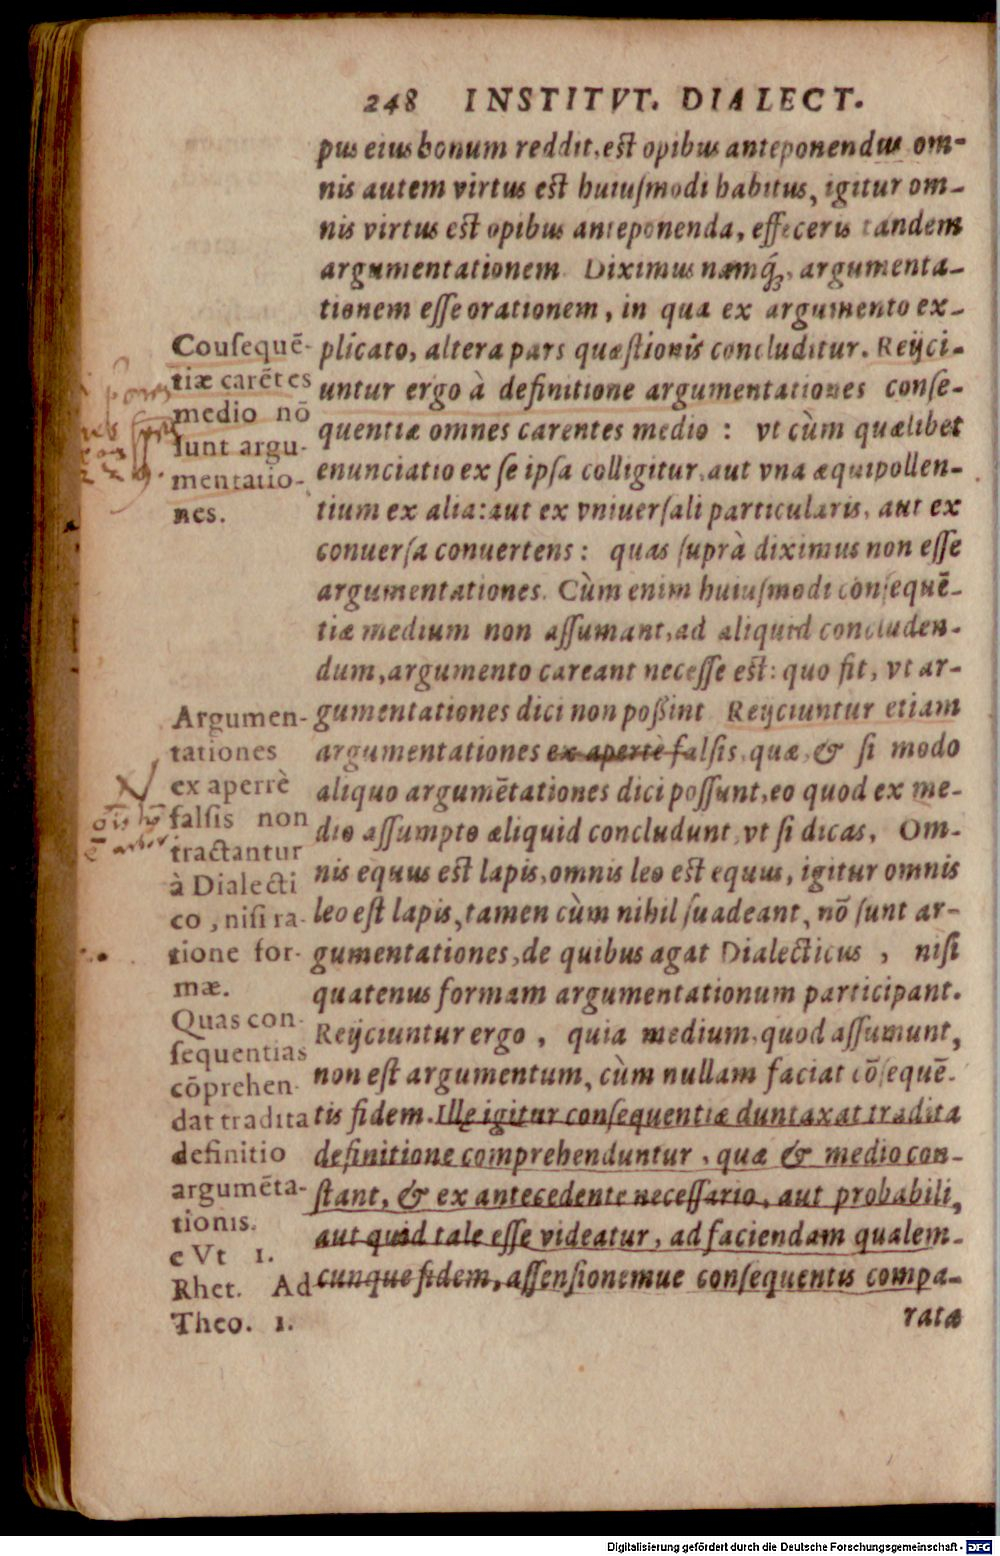 248 INSTITVT. DIALECT.
pus eius bonum reddit, est opibus anteponendus om-
nis autem virtus est huiusmodi habitus, igitur om-
nis virtus est opibus anteponenda, effeceris tandem
argumentationem. Diximus namq́;, argumenta-
tionem esse orationem, in qua ex argumento ex-
plicato, altera pars quæstionis concluditur. Reijci-
untur ergo à definitione argumentationes conse-
quentiæ omnes carentes medio : vt cùm quælibet
enunciatio ex se ipsa colligitur, aut vna æquipollen-
tium ex alia: aut ex vniuersali particularis, aut ex
conuersa conuertens : quas suprà diximus non esse
argumentationes. Cùm enim huiusmodi consequē-
tiæ medium non assumant, ad aliquid concluden-
dum, argumento careant necesse est: quo fit, vt ar-
gumentationes dici non poßint Reijciuntur etiam
argumentationes ex apertè falsis, quæ, & si modo
aliquo argumētationes dici possunt, eo quod ex me-
dio assumpto aliquid concludunt, vt si dicas, Om-
nis equus est lapis, omnis leo est equus, igitur omnis
leo est lapis, tamen cùm nihil suadeant, nō sunt ar-
gumentationes, de quibus agat Dialecticus , nisi
quatenus formam argumentationum participant.
Reijciuntur ergo , quia medium, quod assumunt,
non est argumentum, cùm nullam faciat cōsequē-
tis fidem. Illę igitur consequentiæ duntaxat tradita
definitione comprehenduntur, quæ & medio con-
stant, & ex antecedente necessario, aut probabili,
aut quid tale esse videatur, ad faciendam qualem-
cunque fidem, assensionemue consequentis compa-
ratæ
Cousequē-
tiæ carētes
medio nō
sunt argu-
mentatio-
nes.
Argumen-
tationes
ex aperrè
falsis non
tractantur
à Dialecti
co, nisi ra-
tione for-
mæ.
Quas con-
sequentias
cōprehen-
dat tradita
definitio
argumēta-
tionis.
e Vt 1.
Rhet. Ad
Theo. 1.
Digitalisierung gefördert durch die Deutsche Forschungsgemeinschaft - DFG